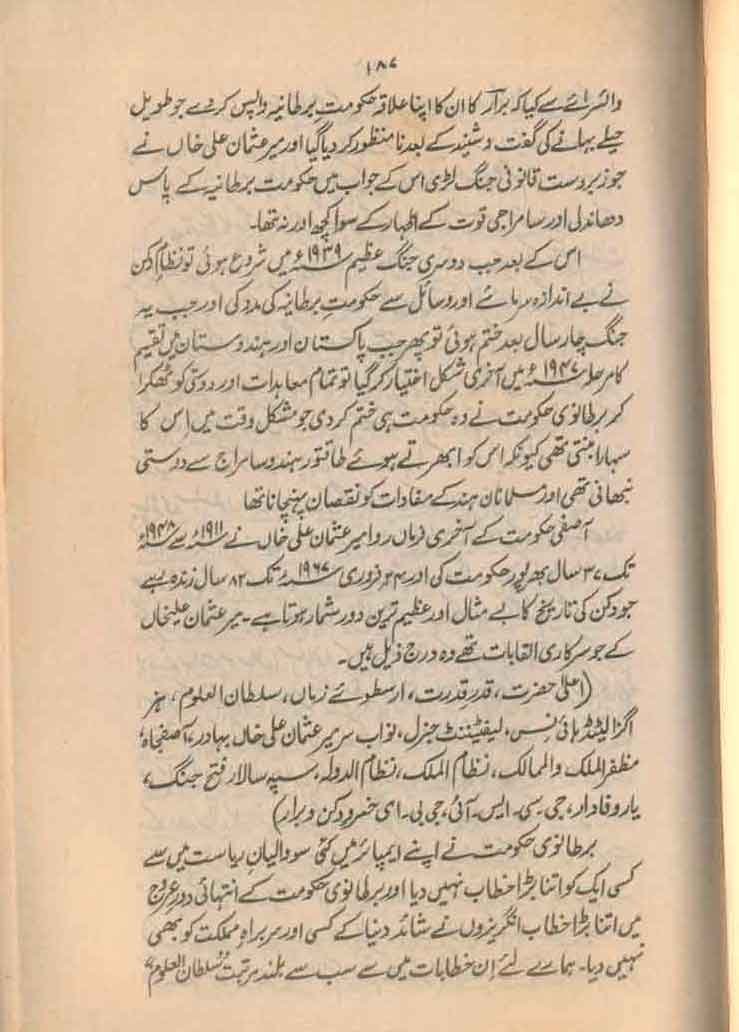 ۱۸۷
وائسرائے سے کیا کہ برآر کا ان کا اپنا علاقہ حکومت برطانیہ واپس کر دے جو طویل
حیلے بہانے کی گفت و شنید کے بعد نامنظور کر دیا گیا اور میر عثمان علی خاں نے
جو زبردست قانونی جنگ لڑی اس کے جواب میں حکومت برطانیہ کے پاس
دھاندلی اور سامراجی قوت کے اظہار کے سوا کچھ اور نہ تھا۔
اس کے بعد جب دوسری جنگ عظیم ۱۹۳۹ء میں شروع ہوئی تو نظام دکن
نے بے اندازہ سرمائے اور وسائل سے حکومتِ برطانیہ کی مدد کی اور جب یہ
جنگ چار سال بعد ختم ہوئی تو پھر جب پاکستان اور ہندوستان میں تقسیم
کا مرحلہ ۱۹۴۷ء میں آخری شکل اختیار کر گیا تو تمام معاہدات اور دوستی کو ٹھکرا
کر برطانوی حکومت نے وہ حکومت ہی ختم کر دی جو مشکل وقت میں اِس کا
سہارا بنتی تھی کیونکہ اس کو ابھرتے ہوئے طاقتور ہندو سامراج سے دوستی
نبھانی تھی اور مسلمانان ہند کے مفادات کو نقصان پہنچانا تھا
آصفی حکومت کے آخری فرماں روا میر عثمان علی خاں نے ۱۹۱۱ء سے ۱۹۴۸ء
تک ۳۷ سال بھرپور حکومت کی اور ۲۴ فروری ۱۹۶۷ء تک ۸۲ سال زندہ رہے
جو دکن کی تاریخ کا بے مثال اور عظیم ترین دور شمار ہوتا ہے۔ میر عثمان علیخاں
کے جو سرکاری القابات تھے وہ درج ذیل ہیں۔
(اعلیٰ حضرت، قدر قدرت، ارسطوئے زماں، سلطان العلوم، ہز
اگزالیٹڈ ہائی نِس، لیفٹیننٹ جنرل، نواب سر میر عثمان علی خاں بہادر، آصفجاہ،
مظفر الملک والممالک، نظام الملک، نظام الدولہ، سپہ سالار فتح جنگ،
یار وفادار، جی۔سی۔ایس۔آئی، جی بی۔ای خسرو دکن و برار)
برطانوی حکومت نے اپنے ایمپائر میں کئی سو والیانِ ریاست میں سے
کسی ایک کو اتنا بڑا خطاب نہیں دیا اور برطانوی حکومت کے انتہائی دورِ عروج
میں اتنا بڑا خطاب انگریزوں نے شائد دنیا کے کسی اور سربراہِ مملکت کو بھی
نہیں دیا۔ ہمارے لئے اِن خطابات میں سے سب سے بلند مرتبت "سلطان العلوم"